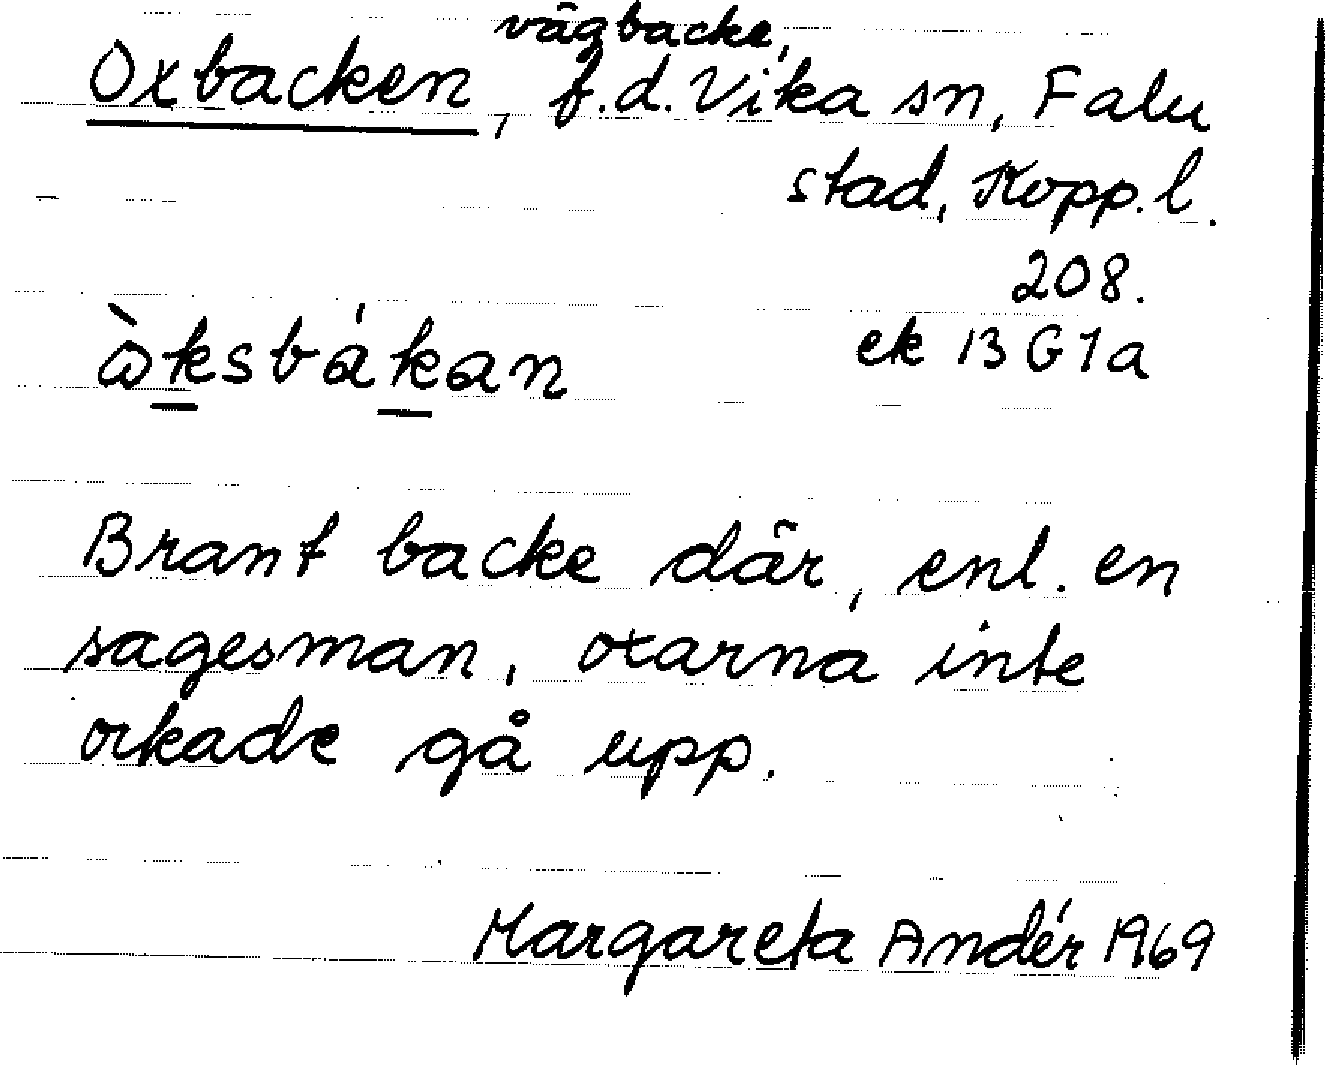 vägbacke,
Oxbacken, f.d. Vika sn, Falu
stad, Kopp.l.
208.
ek 13 G 1a
ɷ̀k̲sbák̲an
Brant backe där, enl. en
sagesman, oxarna inte
orkade gå upp.
Margareta Andér 1969